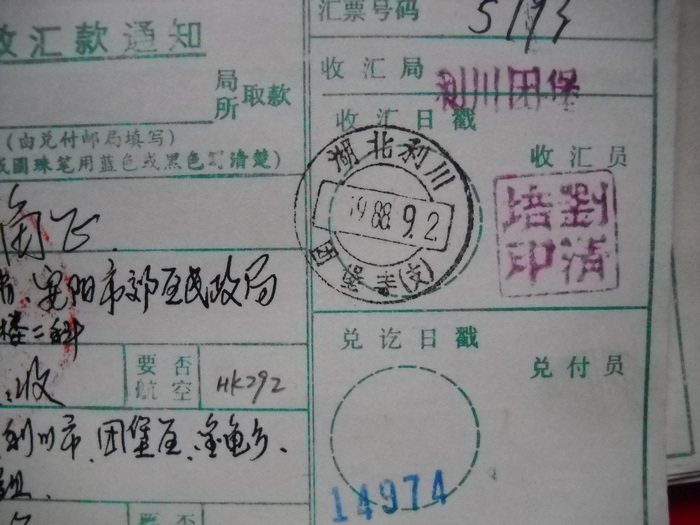 收汇款通知
局
所 取款
(由兑付邮局填写)
圆珠笔用蓝色或黑色 清楚)
安阳市郊区民政局
楼二科
收
要否
航空
HK292
利川市、团堡区、金龟乡、
组
要否
汇票号码
5193
收汇局
利川团堡
收汇日戳
湖北利川
1988.9.2
团堡寺(文)
收汇员
劉清
培印
兑讫日戳
兑付员
14974